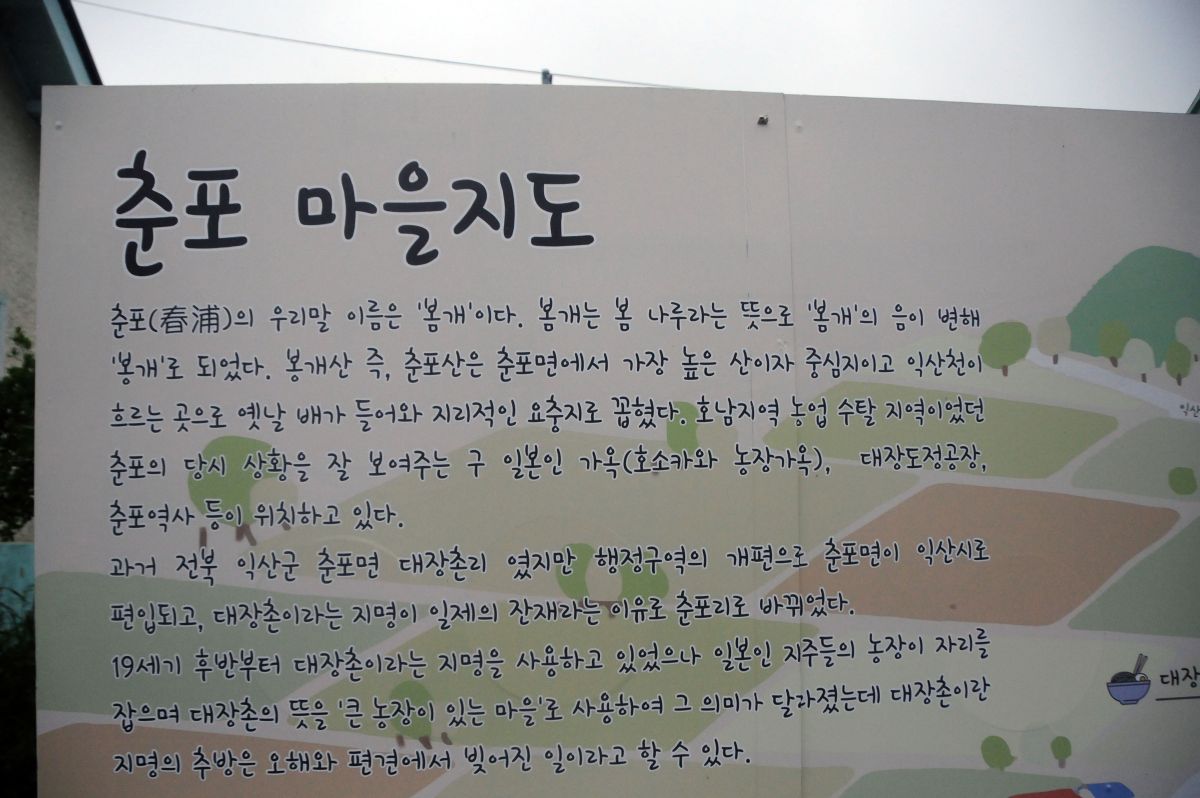 춘포 마을지도
춘포(春浦)의 우리말 이름은 '봄개'이다. 봄개는 봄 나루라는 뜻으로 '봄개'의 음이 변해
'봉개'로 되었다. 봉개산 즉, 춘포산은 춘포면에서 가장 높은 산이자 중심지이고 익산천이
흐르는 곳으로 옛날 배가 들어와 지리적인 요충지로 꼽혔다. 호남지역 농업 수탈 지역이었던
춘포의 당시 상황을 잘 보여주는 구 일본인 가옥(호소카와 농장가옥), 대장도정공장,
춘포역사 등이 위치하고 있다.
과거 전북 익산군 춘포면 대장촌리 였지만 행정구역의 개편으로 춘포면이 익산시로
편입되고, 대장촌이라는 지명이 일제의 잔재라는 이유로 춘포리로 바뀌었다.
19세기 후반부터 대장촌이라는 지명을 사용하고 있었으나 일본인 지주들의 농장이 자리를
잡으며 대장촌의 뜻을 '큰 농장이 있는 마을'로 사용하여 그 의미가 달라졌는데 대장촌이란
지명의 추방은 오해와 편견에서 빚어진 일이라고 할 수 있다.
익산
대장